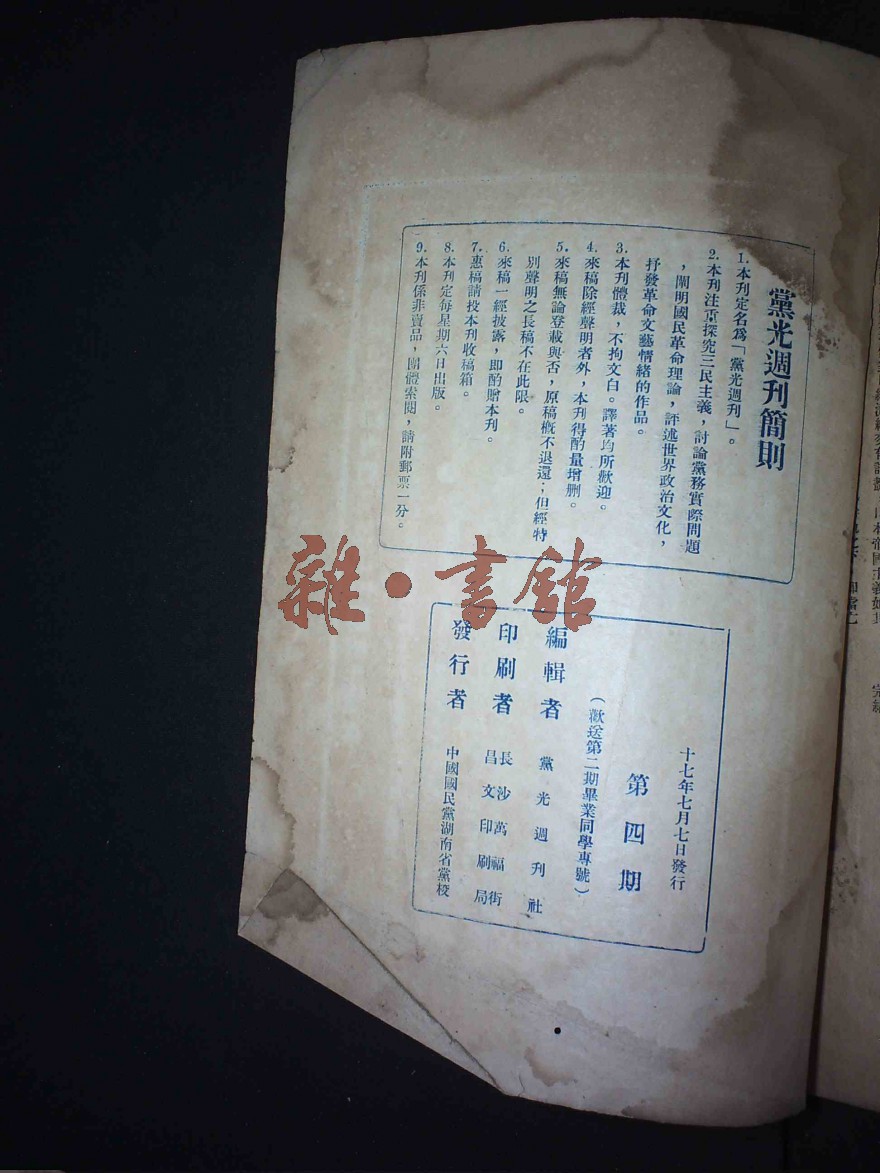 黨光週刊簡則
1.本刊定名爲「黨光週刊」。
2.本刊注重探究三民主義，討論黨務實際問題
，闡明國民革命理論，評述世界政治文化，
抒發革命文藝情緒的作品。
3.本刊體裁，不拘文白。譯著均所歡迎。
4.來稿除經聲明者外，本刊得酌量增删。
5.來稿無論登載與否，原稿概不退還；但經特
別聲明之長稿不在此限。
6.來稿一經披露，即酌贈本刊。
7.惠稿請投本刊收稿箱。
8.本刊定每星期六日出版。
9.本刊係非賣品，團體索閱，請附郵票一分。
雜·書館
十七年七月七日發行
第四期
（歡送第二期畢業同學專號）
編輯者 黨光週刊社
印刷者 長沙萬福街
昌文印刷局
發行者 中國國民黨湖南省黨校
日本帝國主義